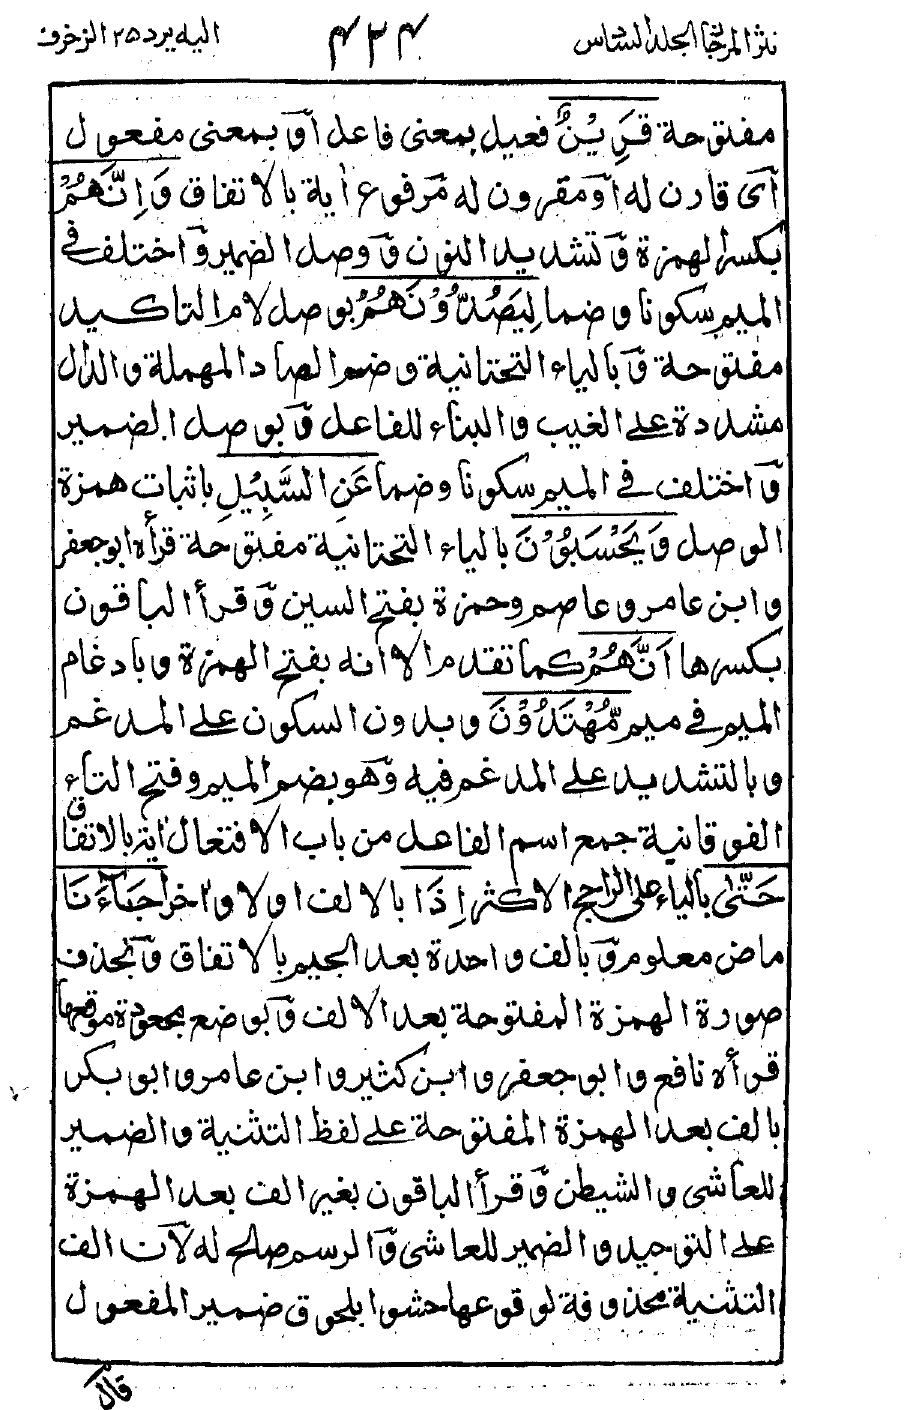 نثر المرجان الجلد السادس ٤٣٤ اليه يرد ٢٥ الزخرف
مفتوحة قَرِيْنٌ فعيل بمعنى فاعل او بمعنى مفعول
اى قارن له او مقرون له مرفوع اية بالاتفاق وَاِنَّهُمْ
بكسر الهمزة وتشديد النون ووصل الضمير واختلف في
الميم سكونا وضما لَيَصُدُّوْنَهُمْ بوصل لام التاكيد
مفتوحة وبالياء التحتانية وضم الصاد المهملة والدال
مشددة على الغيب والبناء للفاعل وبوصل الضمير
واختلف في الميم سكونا وضما عَنِ السَّبِيْلِ باثبات همزة
الوصل وَيَحْسَبُوْنَ بالياء التحتانية مفتوحة قرأه ابو جعفر
وابن عامر وعاصم وحمزة بفتح السين وقرأ الباقون
بكسرها اَنَّهُمْ كما تقدم الا انه بفتح الهمزة وبادغام
الميم في ميم مُّهْتَدُوْنَ وبدون السكون على المدغم
وبالتشديد على المدغم فيه وهو بضم الميم وفتح التاء
الفوقانية جمع اسم الفاعل من باب الافتعال اية بالاتفاق
حَتّٰى بالياء على الراجح الاكثر اِذَا بالالف اولا واخرا جَاۤءَنَا
ماض معلوم وبالف واحدة بعد الجيم بالاتفاق وبحذف
صورة الهمزة المفتوحة بعد الالف وبوضع مجعودة موقعها
قرأه نافع وابو جعفر وابن كثير وابن عامر وابو بكر
بالف بعد الهمزة المفتوحة على لفظ التثنية والضمير
للعاشى والشيطن وقرأ الباقون بغير الف بعد الهمزة
على التوحيد والضمير للعاشى والرسم صالح له لان الف
التثنية محذوفة لوقوعها حشوا بلحوق ضمير المفعول
قال